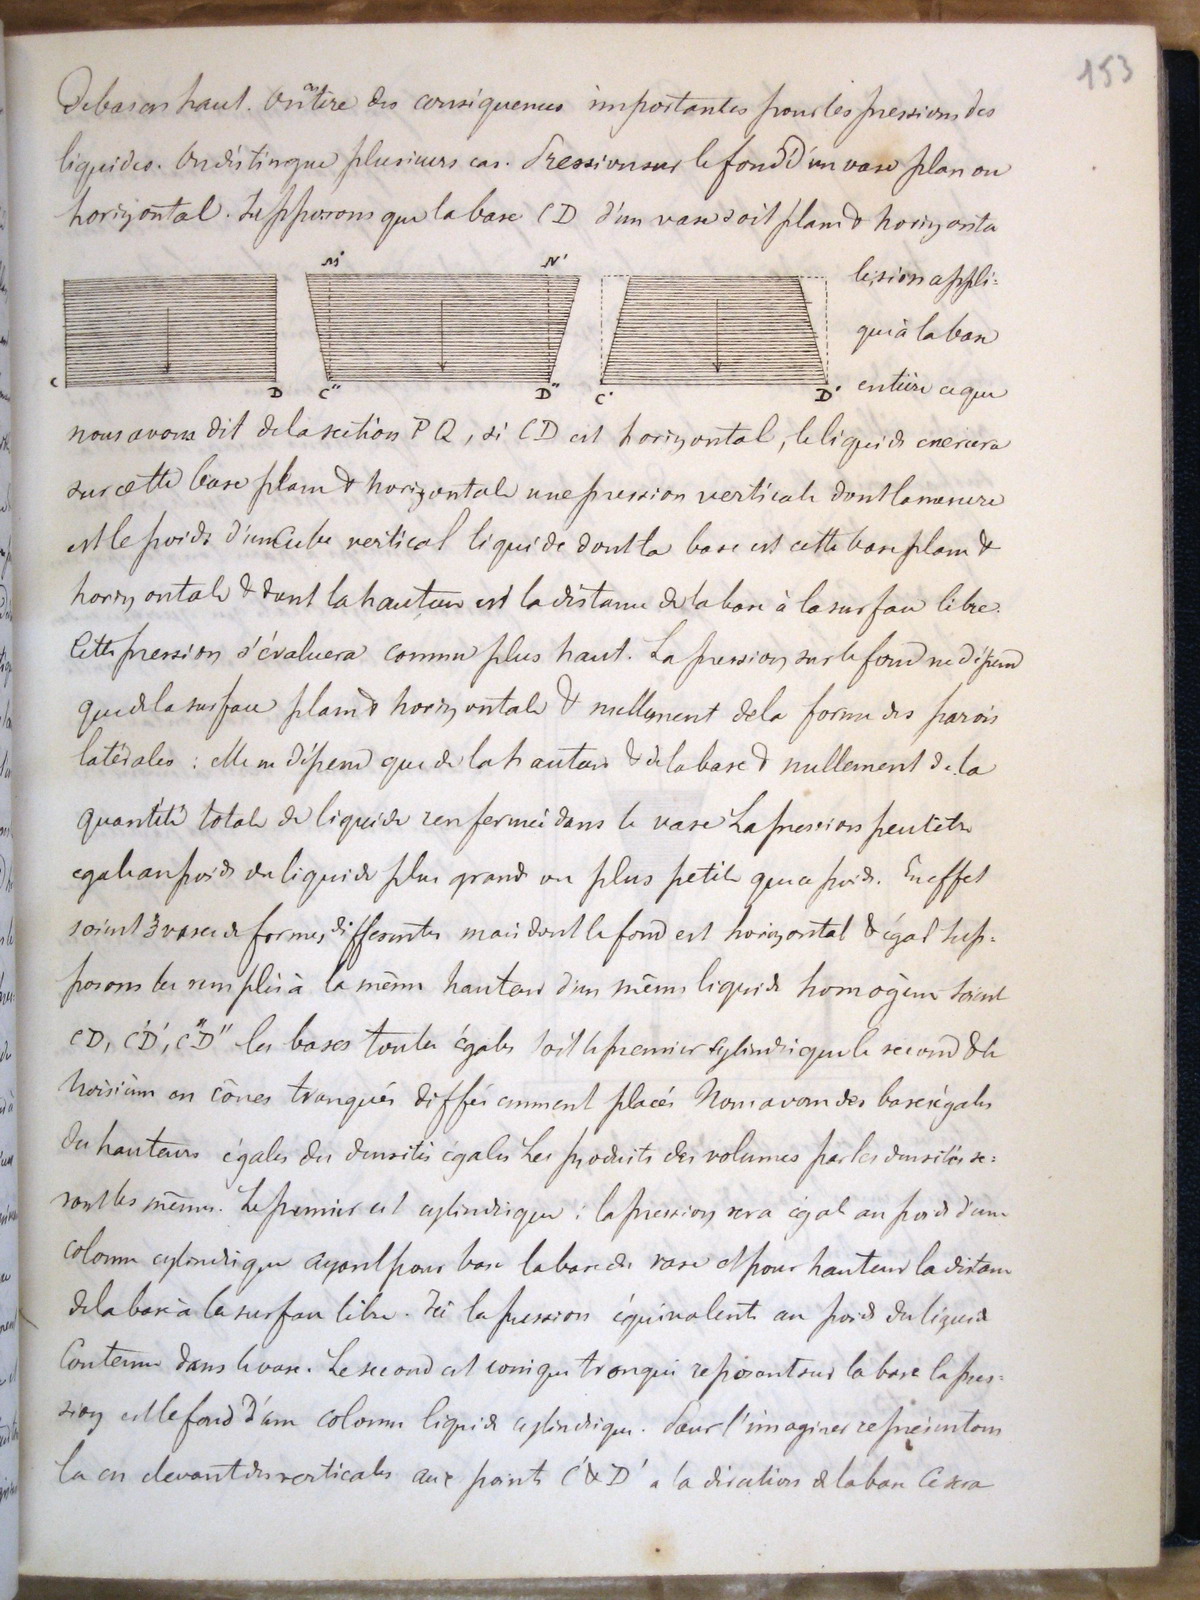 153
De bas en haut. On en tire des consequences importantes pour les pressions des
liquides. On distingue plusieurs cas. Pression sur le fond d'un vase plan ou
horizontal. Supposons que la base CD d'un vase soit plane & horizonta
le, si on appli=
M' N'
que à la base
C D C" D" C' D'
entière ce que
nous avons dit de la section PQ, si CD est horizontal, le liquide exercera
sur cette base plane & horizontale une pression verticale dont la mesure
est le poids d'un Cube vertical liquide dont la base est cette base plane &
horizontale & dont la hauteur est la distance de la base à la surface libre.
Cette pression s'évaluera comme plus haut. La pression sur le fond ne dépend
que de la surface plane & horizontale & nullement de la forme des parois
latérales : elle ne dépend que de la hauteur & de la base & nullement de la
quantité totale de liquide renfermée dans le vase La pression peut être
egale au poids du liquide plus grande ou plus petite que ce poids. En effet
soient 3 vases de formes differentes mais dont le fond est horizontal & égal Sup=
posons les remplis à la même hauteur d'un même liquide homogène Soient
CD, C'D', C"D" les bases toutes égales Soit le premier cylindrique le second & le
troisième en cônes tronqués différemment placés Nous avons des bases égales
Des hauteurs égales des densités égales Les produits des volumes par les densités se=
ront les mêmes. Le premier est cylindrique : la pression sera égale au poids d'une
colonne cylindrique ayant pour base la base du vase et pour hauteur la distance
de la base à la surface libre. Ici la pression équivalente au poids du liquide
Contenu dans le vase. Le second est conique tronqué reposant sur la base la pres=
sion est le fond d'une colonne liquide cylindrique. Pour l'imaginer représentons
la en élevant des verticales aux points C' & D' a la direction de la base Ce sera